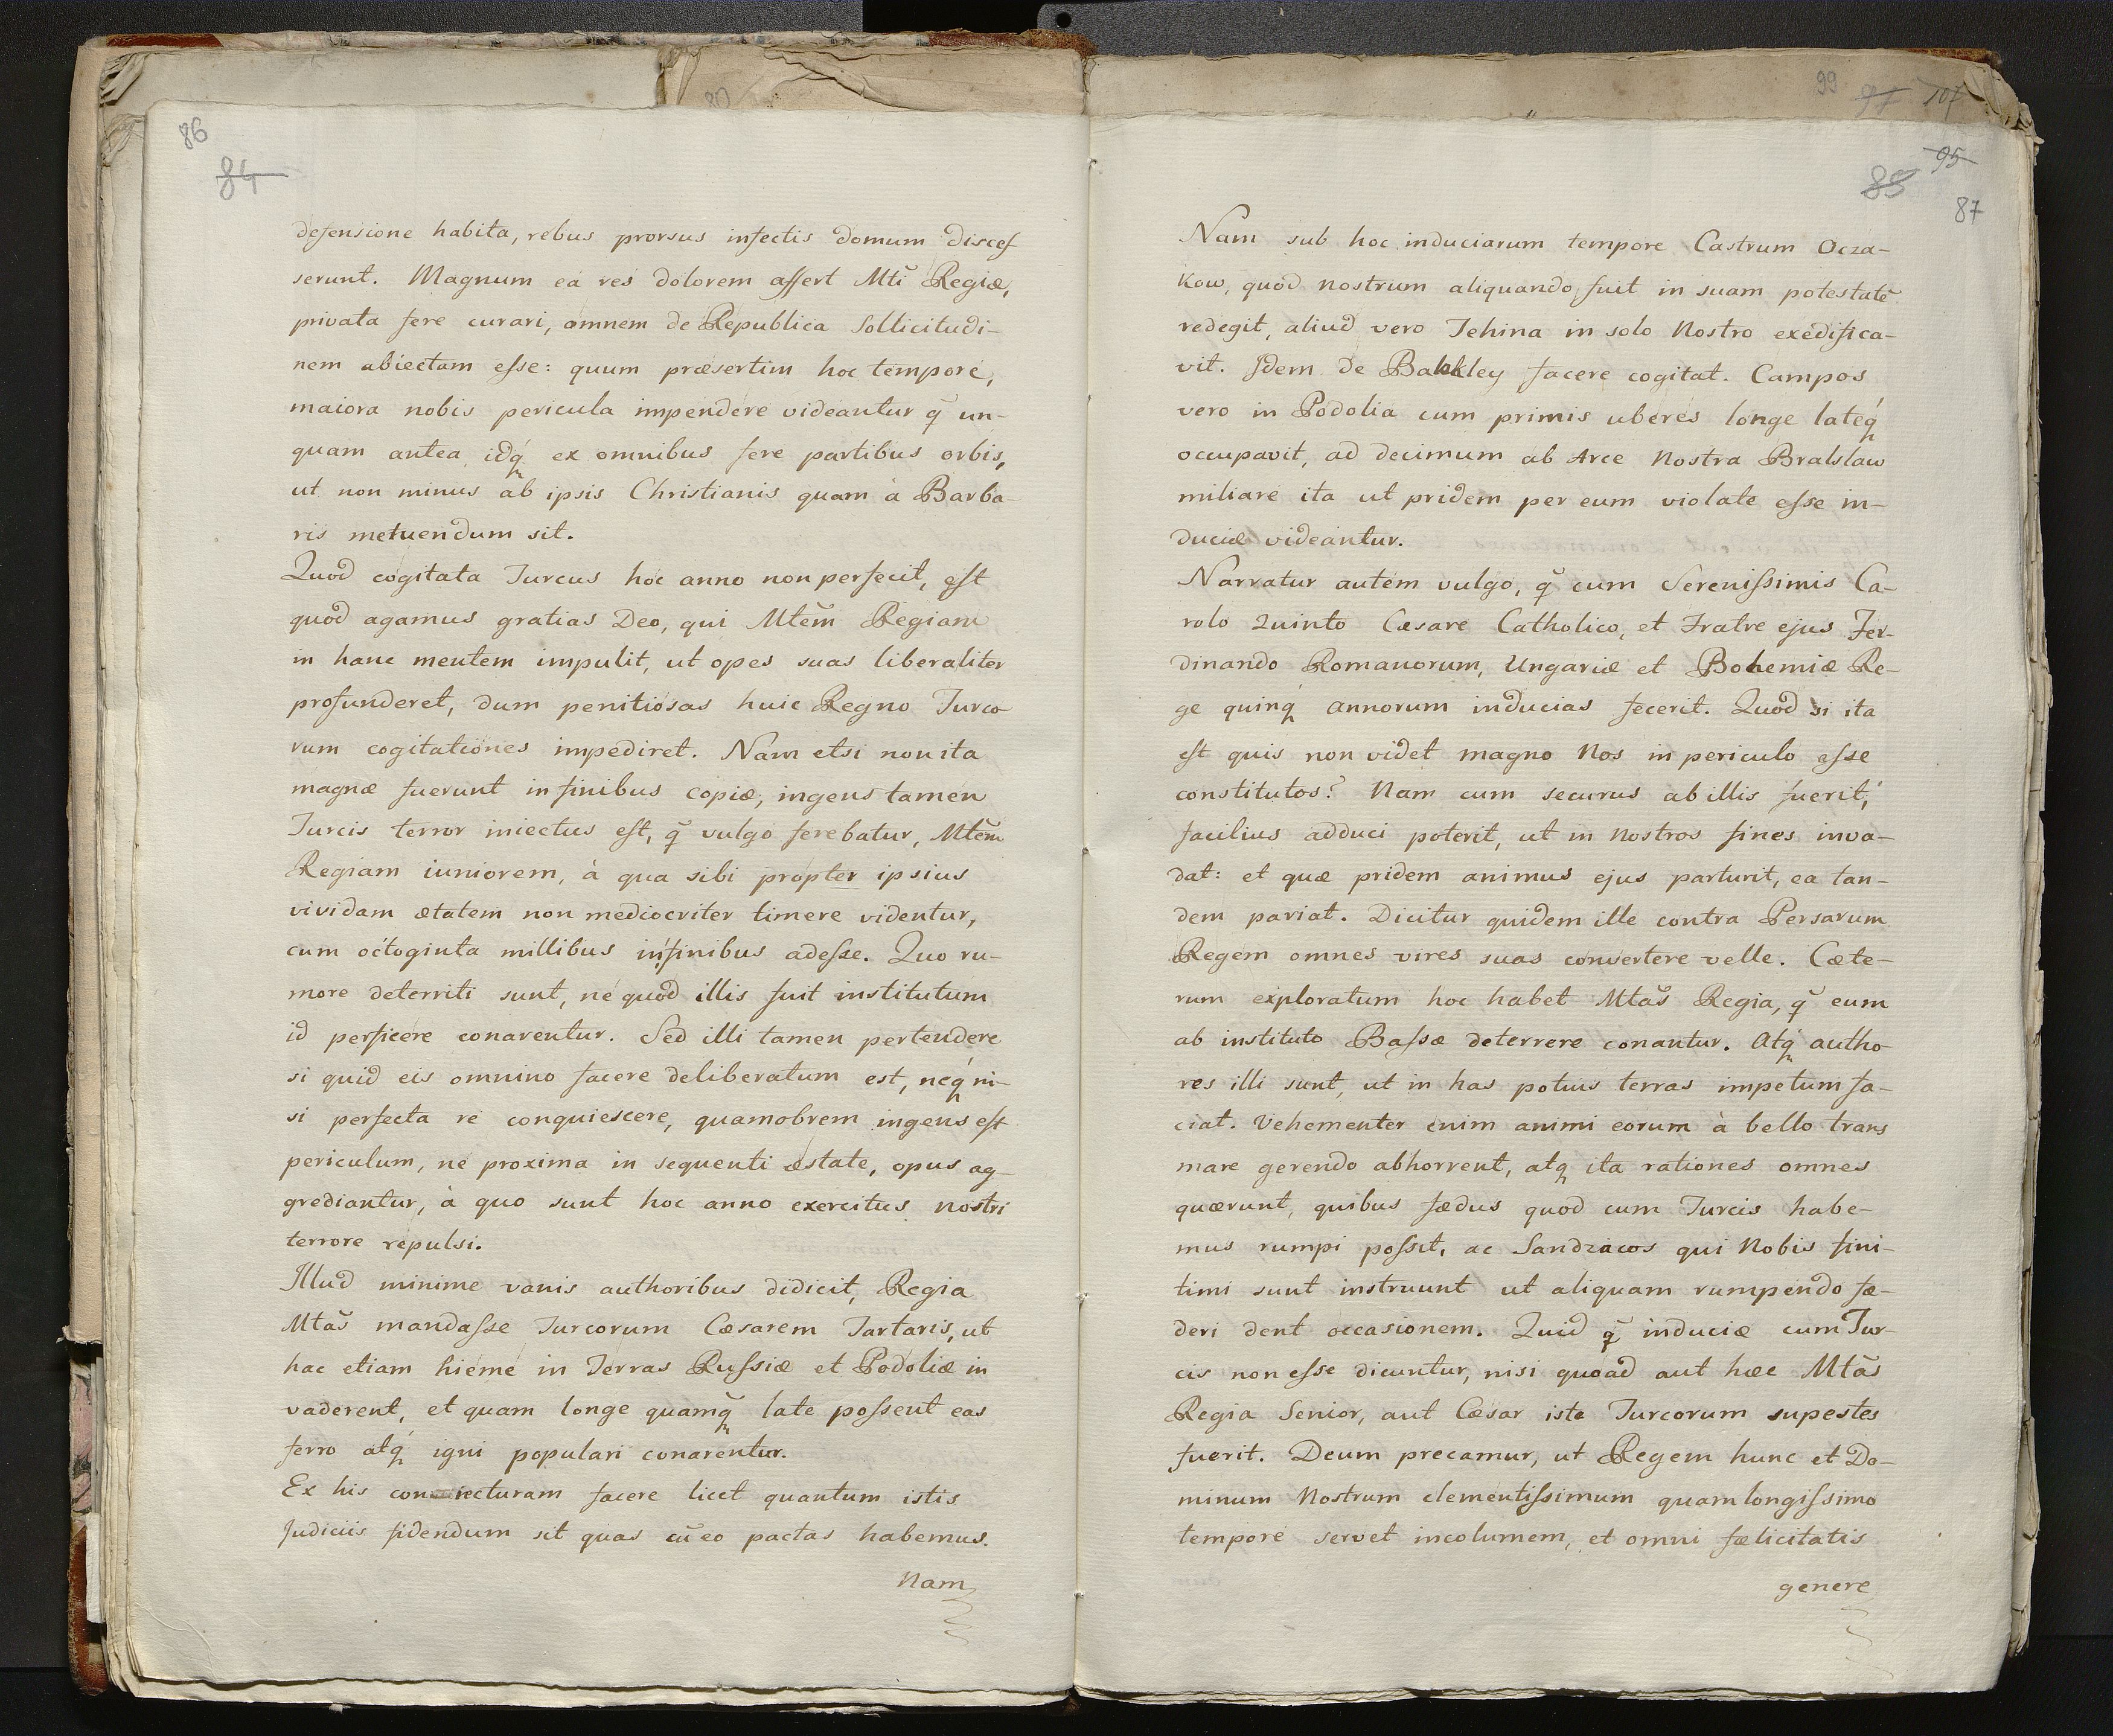 86
84
defensione habita, rebus prorsus infectis domum disces
serunt. Magnum ea res dolorem affert Mti Regiæ,
privata fere curari, omnem de Republica Sollicitudi-
nem abiectam esse: quum præsertim hoc tempore,
maiora nobis pericula impendere videantur q̃ un-
quam antea idq́ ex omnibus fere partibus orbis,
ut non minus ab ipsis Christianis quam à Barba-
ris metuendum sit.
Quod cogitata Turcus hoc anno non perfecit, est
quod agamus gratias Deo, qui Mtẽm Regiam
in hanc mentem impulit, ut opes suas liberaliter
profunderet, dum penitiosas huic Regno Turco
rum cogitationes impediret. Nam etsi non ita
magnæ fuerunt in finibus copiæ, ingens tamen
Turcis terror iniectus est, q̃ vulgo ferebatur, Mtẽm
Regiam iuniorem, à qua sibi propter ipsius
vividam ætatem non mediocriter timere videntur,
cum octoginta millibus in finibus adesse. Quo ru-
more deterriti sunt, ne quod illis fuit institutum
id perficere conarentur. Sed illi tamen pertendere
si quid eis omnino facere deliberatum est, neq́ ni-
si perfecta re conquiescere, quamobrem ingens est
periculum, ne proxima in sequenti æstate, opus ag-
grediantur, à quo sunt hoc anno exercitus nostri
terrore repulsi.
Illud minime vanis authoribus didicit, Regia
Mtãs mandasse Turcorum Cæsarem Tartaris, ut
hac etiam hieme in Terras Russiæ et Podoliæ in
vaderent, et quam longe quamq̃ late possent eas
ferro atq́ igni populari conarentur.
Ex his coniecturam facere licet quantum istis
Judiciis fidendum sit quas cũ eo pactas habemus.
Nam
99 97 107
95
85
87
Nam sub hoc induciarum tempore Castrum Ocza-
kow, quod nostrum aliquando fuit in suam potestatẽ
redegit, aliud vero Tehina in solo Nostro exedifica-
vit. Idem de Bakkley facere cogitat. Campos
vero in Podolia cum primis uberes longe lateq́
occupavit, ad decimum ab Arce Nostra Bralslaw
miliare ita ut pridem per eum violate esse in-
duciæ videantur.
Narratur autem vulgo, q̃ cum Serenissimis Ca-
rolo Quinto Cæsare Catholico, et Fratre ejus Fer-
dinando Romanorum, Ungariæ et Bohemiæ Re-
ge quinq́ annorum inducias fecerit. Quod si ita
est quis non videt magno Nos in periculo esse
constitutos? Nam cum securus ab illis fuerit,
facilius adduci poterit, ut in Nostros fines inva-
dat: et quæ pridem animus ejus parturit, ea tan-
dem pariat. Dicitur quidem ille contra Persarum
Regem omnes vires suas convertere velle. Cæte-
rum exploratum hoc habet Mtãs Regia, q̃ eum
ab instituto Bassæ deterrere conantur. Atq́ autho
res illi sunt, ut in has potius terras impetum fa-
ciat. Vehementer enim animi eorum à bello trans
mare gerendo abhorrent, atq ita rationes omnes
quærunt, quibus fædus quod cum Turcis habe-
mus rumpi possit, ac Sandzacos qui Nobis fini-
timi sunt instruunt ut aliquam rumpendo fæ-
deri dent occasionem. Quid q̃ induciæ cum Tur-
cis non esse dicuntur, nisi quoad aut hæc Mtãs
Regia Senior, aut Cæsar iste Turcorum supestes
fuerit. Deum precamur, ut Regem hunc et Do-
minum Nostrum clementissimum quam longissimo
tempore servet incolumem, et omni fælicitatis
genere